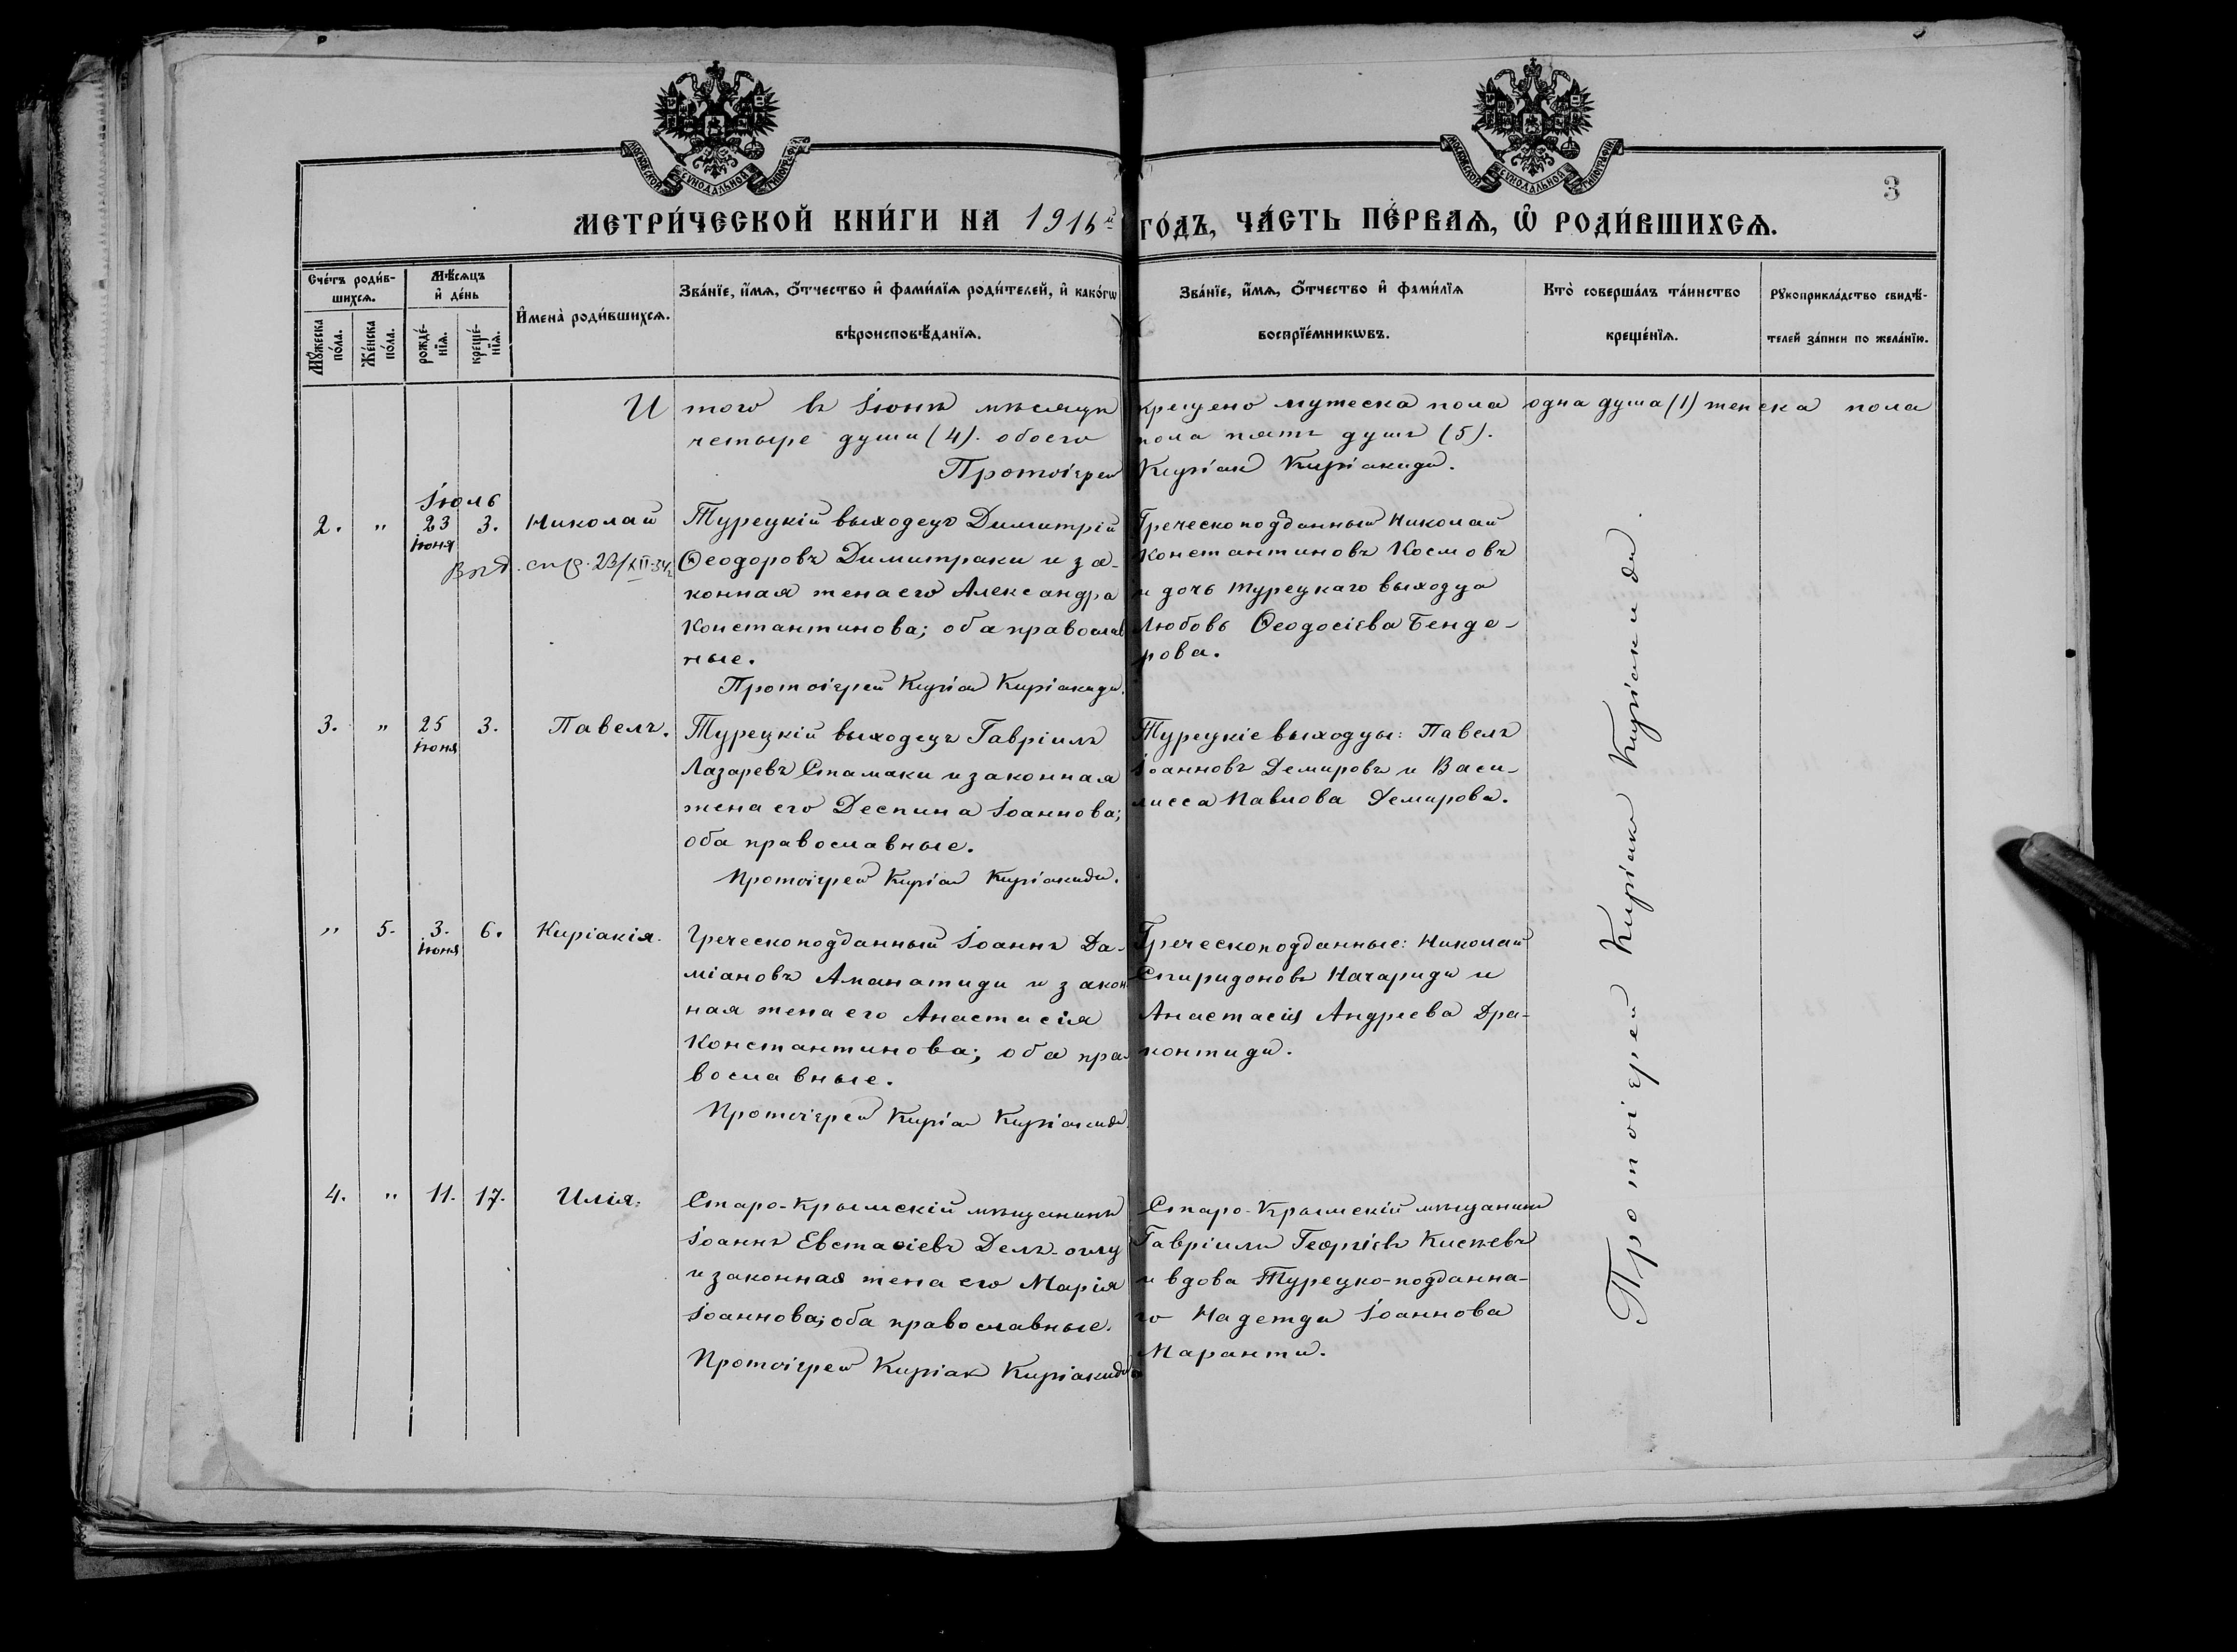 МОСКОВСКОЙ СУНОДАЛЬНОЙ ТИПОГРАФІИ
МОСКОВСКОЙ СУНОДАЛЬНОЙ ТИПОГРАФІИ
3
МЕТРИ́ЧЕСКОЙ КНИ́ГИ НА 1916й ГО́ДЪ, ЧА́СТЬ ПЕ́РВАѦ, Ѡ҆ РОДИ́ВШИХСѦ.
Сче́тъ роди́в-
шихсѧ.
Мꙋ́жеска по́ла.
Же́нска по́ла.
Мѣ́сѧцъ
и҆ де́нь
рожде́-
нїѧ.
креще́-
нїѧ.
И҆мена̀ роди́вшихсѧ.
Зва́нїе, и҆́мѧ, ѻ҆́тчество и҆ фами́лїѧ роди́телей, и҆ како́гѡ
вѣроисповѣ́данїѧ.
Зва́нїе, и҆́мѧ, ѻ҆́тчество и҆ фами́лїѧ
воспрїе́мникѡвъ.
Кто̀ соверша́лъ та́инство
креще́нїѧ.
Рꙋкоприкла́дство свидѣ́-
телей за́писи по жела́нїю.
Итого въ Іюнѣ мѣсяцѣ крещено мужеска пола одна душа (1) женска пола
четыре души (4). обоего пола пять душъ (5).
Протоіерей Киріакъ Киріакиди.
Іюль
2. " 23 Іюня 3. Николай
Выд. спр. 23/XII-34г.
Турецкій выходецъ Димитрій
Ѳеодоровъ Димитраки и за-
конная жена его Александра
Константинова; оба православ
ные.
Протоіерей Киріак Киріакиди.
Греческоподданный Николай
Константиновъ Космовъ
и дочь турецкаго выходца
Любовь Ѳеодосіева Бенде-
рова.
3. " 25 Іюня 3. Павелъ.
Турецкій выходецъ Гавріилъ
Лазаревъ Стамаки и законная
жена его Деспина Іоаннова;
оба православные.
Протоіерей Киріак Киріакиди.
Турецкіе выходцы: Павелъ
Іоанновъ Демировъ и Васи-
лисса Павлова Демирова.
" 5. 3. Іюня 6. Киріакія.
Греческоподданный Іоаннъ Да-
міановъ Аманатиди и закон
ная жена его Анастасія
Константинова; оба пра-
вославные.
Протоіерей Киріак Киріакиди
Греческоподданные: Николай
Спиридоновъ Качариди и
Анастасія Андреева Дра-
контиди.
4. " 11. 17. Илія.
Старо-Крымскій мѣщанинъ
Іоаннъ Евстаѳіевъ Дели-оглу
и законная жена его Марія
Іоаннова; оба православные.
Протоіерей Киріак Киріакиди
Старо-Крымскій мѣщанинъ
Гавріилъ Георгіевъ
и вдова Турецко-подданна-
го Надежда Іоаннова
Маранти.
Протоіерей Киріакъ Киріакиди.